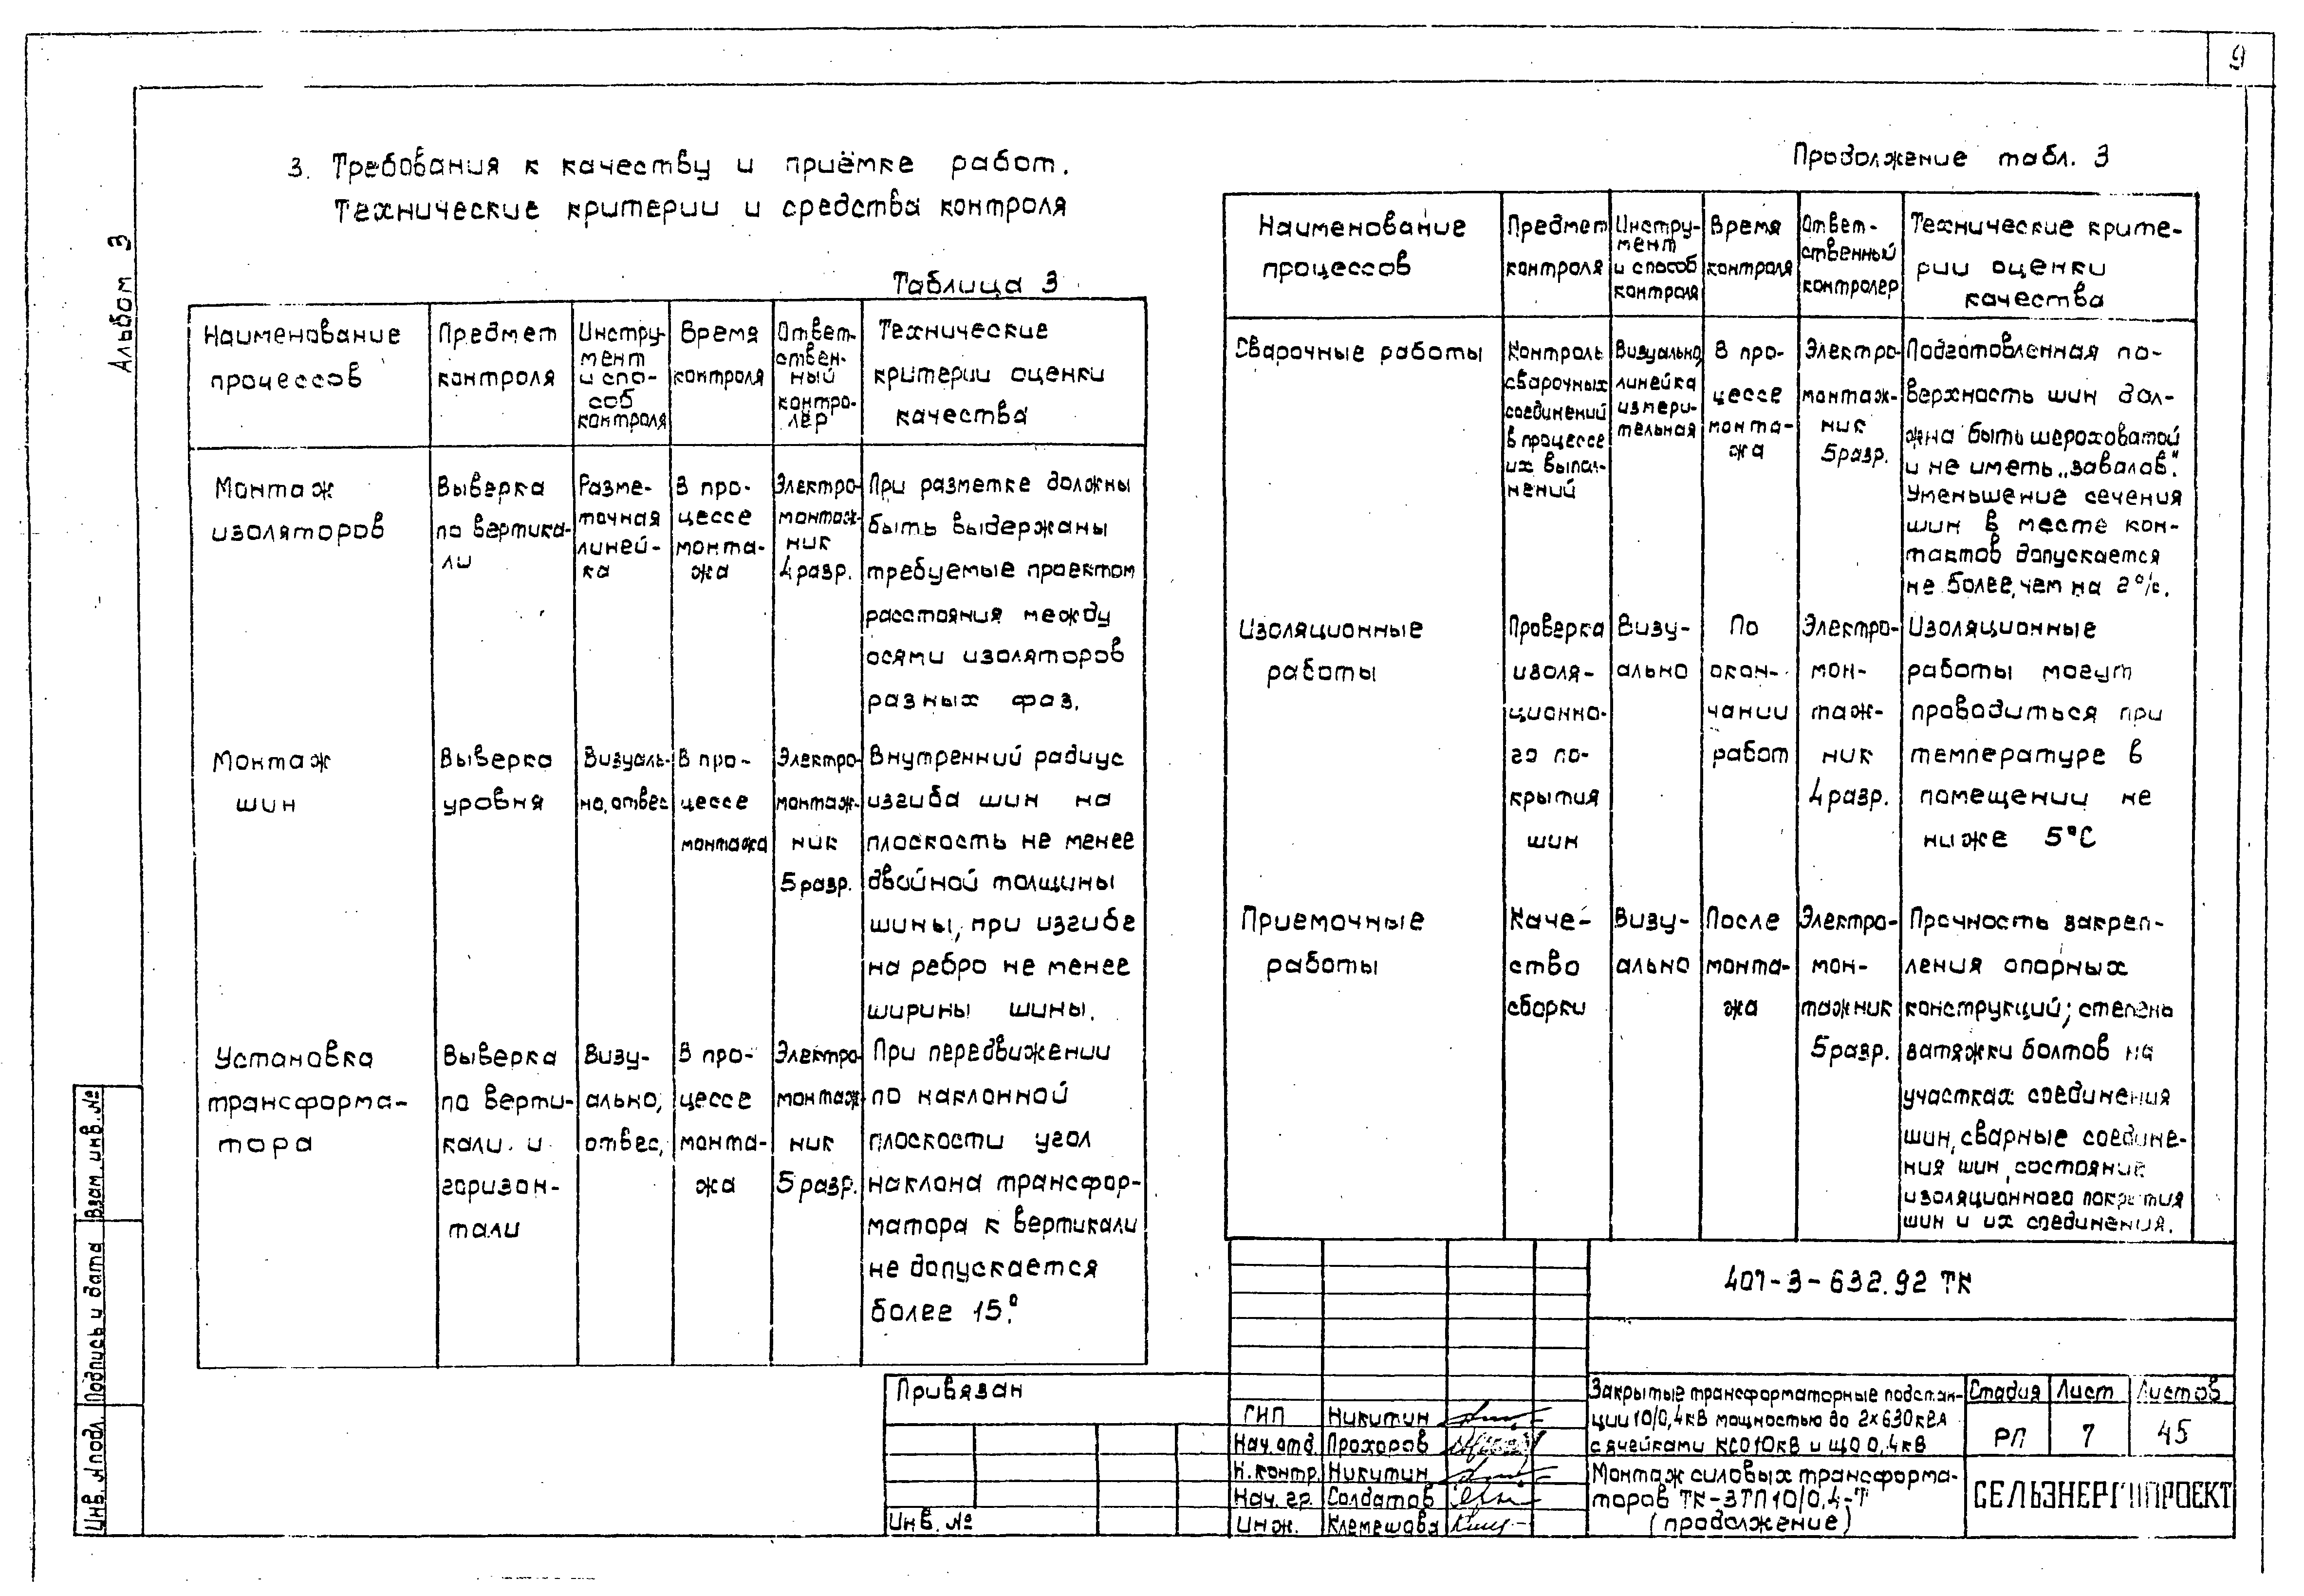 9
Альбом 3
3. Требования к качеству и приёмке работ.
Технические критерии и средства контроля
Таблица 3
Наименование процессов
Предмет контроля
Инстру-
мент
и спо-
соб
контроля
Время
контроля
Ответ-
ствен-
ный
контро-
лёр
Технические
критерии оценки
качества
Монтаж
изоляторов
Выверка
по вертика-
ли
Разме-
точная
линей-
ка
В про-
цессе
монта-
жа
Электро-
монтаж-
ник
4 разр.
При разметке должны
быть выдержаны
требуемые проектом
расстояния между
осями изоляторов
разных фаз.
Монтаж
шин
Выверка
уровня
Визуаль-
но, отвес
В про-
цессе
монтажа
Электро-
монтаж-
ник
5 разр.
Внутренний радиус
изгиба шин на
плоскость не менее
двойной толщины
шины, при изгибе
на ребро не менее
ширины шины.
Установка
трансформа-
тора
Выверка
по верти-
кали и
горизон-
тали
Визу-
ально,
отвес,
В про-
цессе
монта-
жа
Электро-
монтаж-
ник
5 разр.
При передвижении
по наклонной
плоскости угол
наклона трансфор-
матора к вертикали
не допускается
более 15°.
Продолжение табл. 3
Наименование
процессов
Предмет
контроля
Инстру-
мент
и способ
контроля
Время
контроля
Ответ-
ственный
контролер
Технические крите-
рии оценки
качества
Сварочные работы
Контроль
сварочных
соединений
в процессе
их выпол-
нений
Визуально,
линейка
измери-
тельная
В про-
цессе
монта-
жа
Электро-
монтаж-
ник
5 разр.
Подготовленная по-
верхность шин дол-
жна быть шероховатой
и не иметь „завалов".
Уменьшение сечения
шин в месте кон-
тактов допускается
не более, чем на 2%.
Изоляционные
работы
Проверка
изоля-
ционно-
го по-
крытия
шин
Визу-
ально
По
окон-
чании
работ
Электро-
мон-
таж-
ник
4 разр.
Изоляционные
работы могут
проводиться при
температуре в
помещении не
ниже 5°С
Приемочные
работы
Каче-
ство
сборки
Визу-
ально
После
монта-
жа
Электро-
мон-
тажник
5 разр.
Прочность закреп-
ления опорных
конструкций; степень
затяжки болтов на
участках соединения
шин, сварные соедине-
ния шин, состояние
изоляционного покрытия
шин и их соединения.
407-3-632.92 ТК
Привязан
Инв. №
ГИП Никитин
Нач. отд. Прохоров
Н. контр. Никитин
Нач. гр. Солдатов
Инж. Клемешова
Закрытые трансформаторные подстан-
ции 10/0,4кВ мощностью до 2х630кВА
с ячейками КСО10кВ и ЩО 0,4кВ
Монтаж силовых трансформа-
торов ТК-ЗТП10/0,4-Т
(продолжение)
Стадия Лист Листов
РП 7 45
СЕЛЬЭНЕРГОПРОЕКТ
Взам. инв. №
Подпись и дата
Инв. № подл.